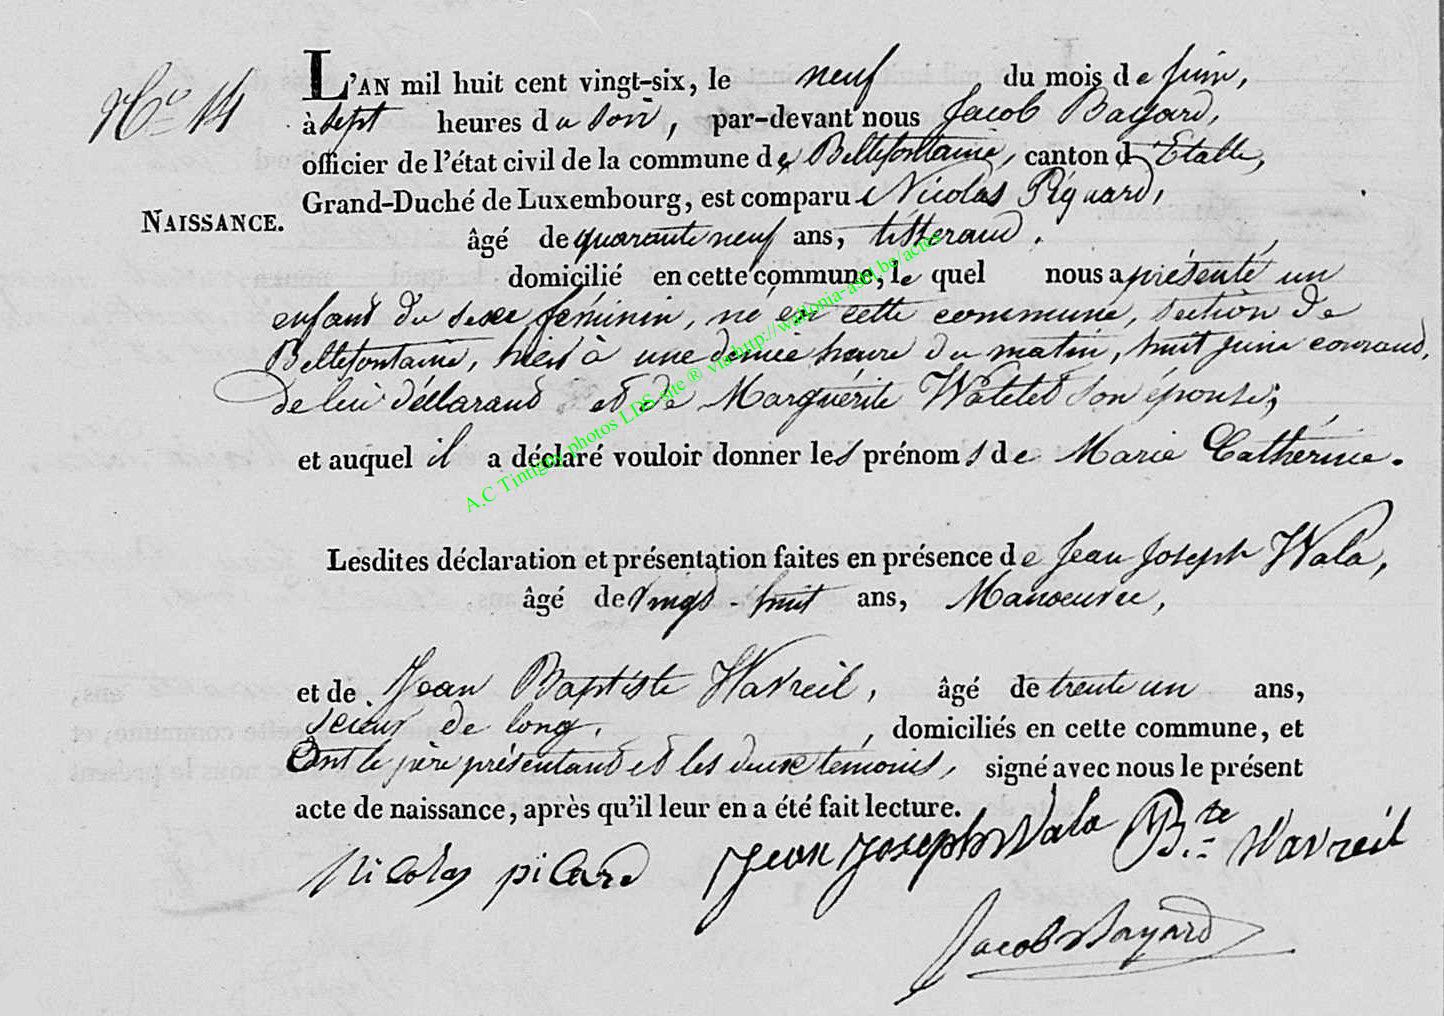 L'AN mil huit cent vingt-six, le neuf du mois de juin,
N.º 14
à sept heures du soir, par-devant nous Jacob Bayard,
officier de l'état civil de la commune de Bellefontaine, canton d'Etalle,
Grand-Duché de Luxembourg, est comparu Nicolas Piquard,
NAISSANCE.
âgé de quarante neuf ans, tisserand.
domicilié en cette commune, le quel nous a présenté un
enfant du sexe féminin, né en cette commune, section de
Bellefontaine, hier à une demie heure du matin, huit juin courant,
de lui déclarant et de Marguérite Watelet son épouse;
et auquel il a déclaré vouloir donner les prénoms de Marie Cathérine.
Lesdites déclaration et présentation faites en présence de Jean Joseph Wala,
âgé de vingt-huit ans, Manoeuvre,
et de Jean Baptiste Wavreil, âgé de trente un ans,
scieur de long, domiciliés en cette commune, et
Ont le père présentant et les deux témoins, signé avec nous le présent
acte de naissance, après qu'il leur en a été fait lecture.
Nicolas picard Jean Joseph Wala B.te Wavreil
Jacob Bayard
A.C Tintigny photos LDS site ® via http://wallonia-asbl.be/actes